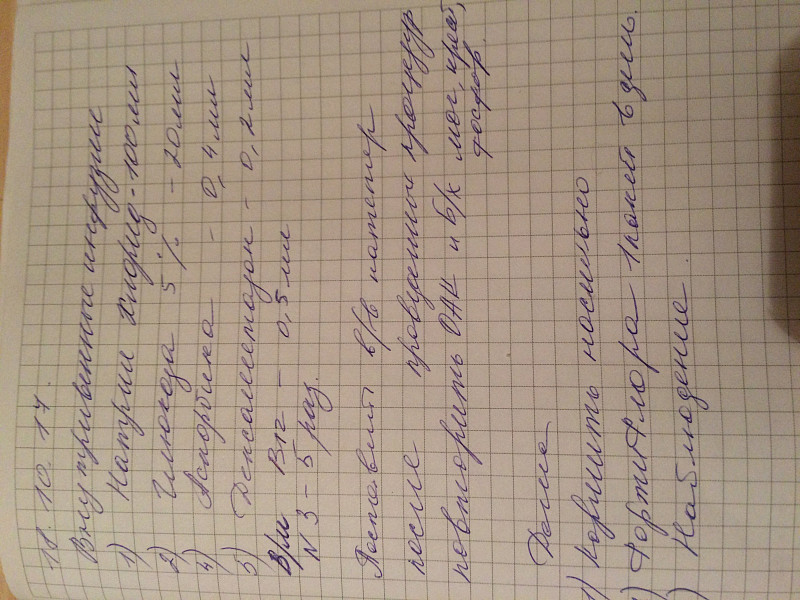 18. 10. 17.
Внутривенные инфузии
1) Натрий хлорид - 100 мл
2) Глюкоза 5 % - 20 мл
4) Аскорбика - 0,4 мл
5) Дексаметазон - 0,2 мл
В/м В12 - 0,5 мл
N 3 - 5 раз.
Поставить в/в катетер
после проведенных процедур
повторить ОАК и б/х моч, креат,
фосфор.
Дома
1) кормить насильно
) ФортиФлора 1 пакет в день.
) Наблюдение.